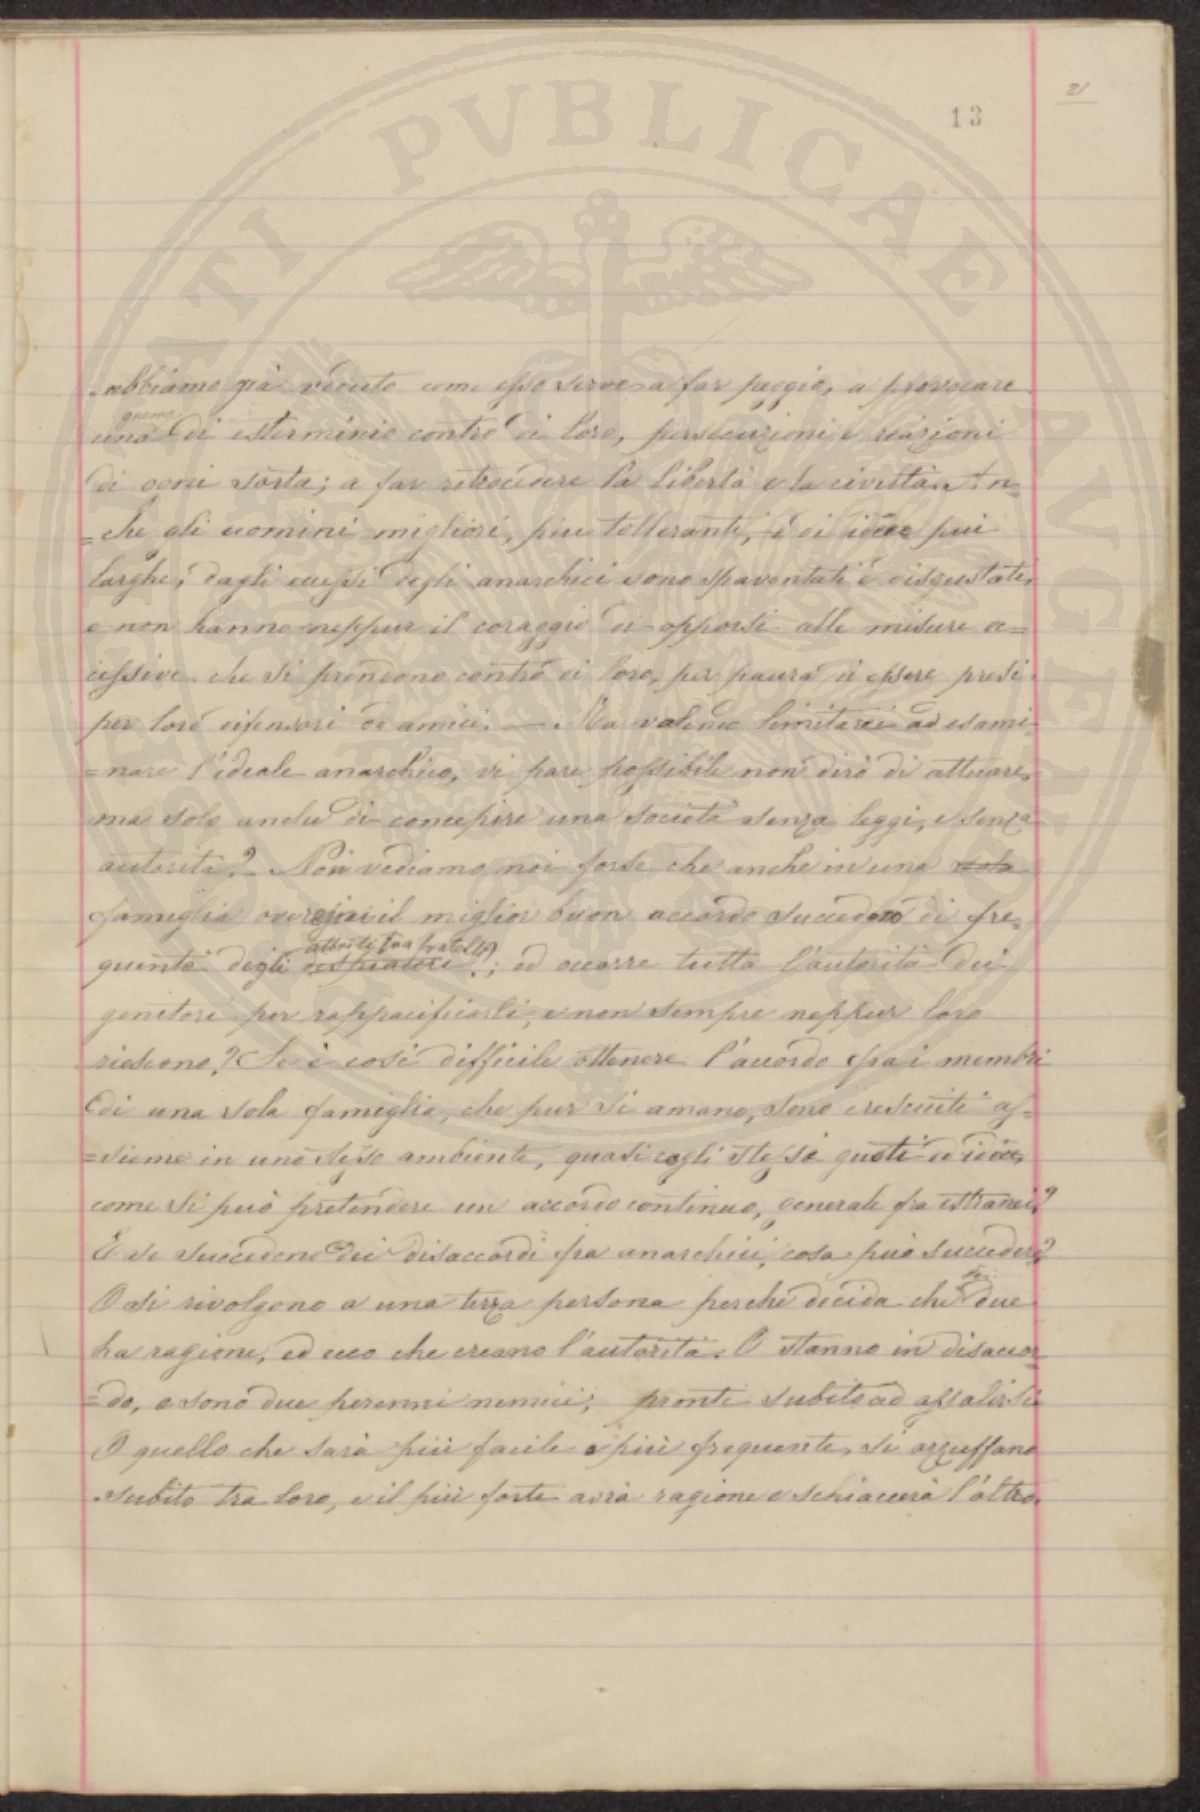 13
21
abbiamo già veduto come esso serve a far peggio, a provocare
una guerra di esterminio contro di loro, persecuzioni e reazioni
di ogni sorta; a far retrocedere la libertà e la civiltà. An=
=che gli uomini migliori, piu tolleranti, e di idee piu
larghe, dagli eccessi degli anarchici sono spaventati e disgustati,
e non hanno neppur il coraggio di opporsi alle misure ec=
cessive che si prendono contro di loro, per paura di essere presi
per loro difensori od amici. — Ma volendo limitarci ad esami=
=nare l'ideale anarchico, vi pare possibile non dirò di attuare,
ma solo anche di concepire una società senza leggi, e senza
autorità? Non vediamo noi forse che anche in una sola
famiglia ove regni il miglior buon accordo succedono di fre=
quente degli attriti tra fratelli; ed occorre tutta l'autorità dei
genitori per rappacificarli, e non sempre neppur loro
riescono? Se è così difficile ottenere l'accordo fra i membri
di una sola famiglia, che pur si amano, sono cresciuti as=
=sieme in uno stesso ambiente, quasi cogli stessi gusti ed idee,
come si può pretendere un accordo continuo, generale fra estranei?
E se succedono dei disaccordi fra anarchici, cosa può succedere?
O si rivolgono a una terza persona perche decida chi dei due
ha ragione, ed ecco che creano l'autorità. O stanno in disaccor=
=do, e sono due perenni nemici, pronti subito ad assalirsi
O quello che sarà più facile e più frequente, si azzuffano
subito tra loro, e il più forte avrà ragione e schiaccerà l'altro.